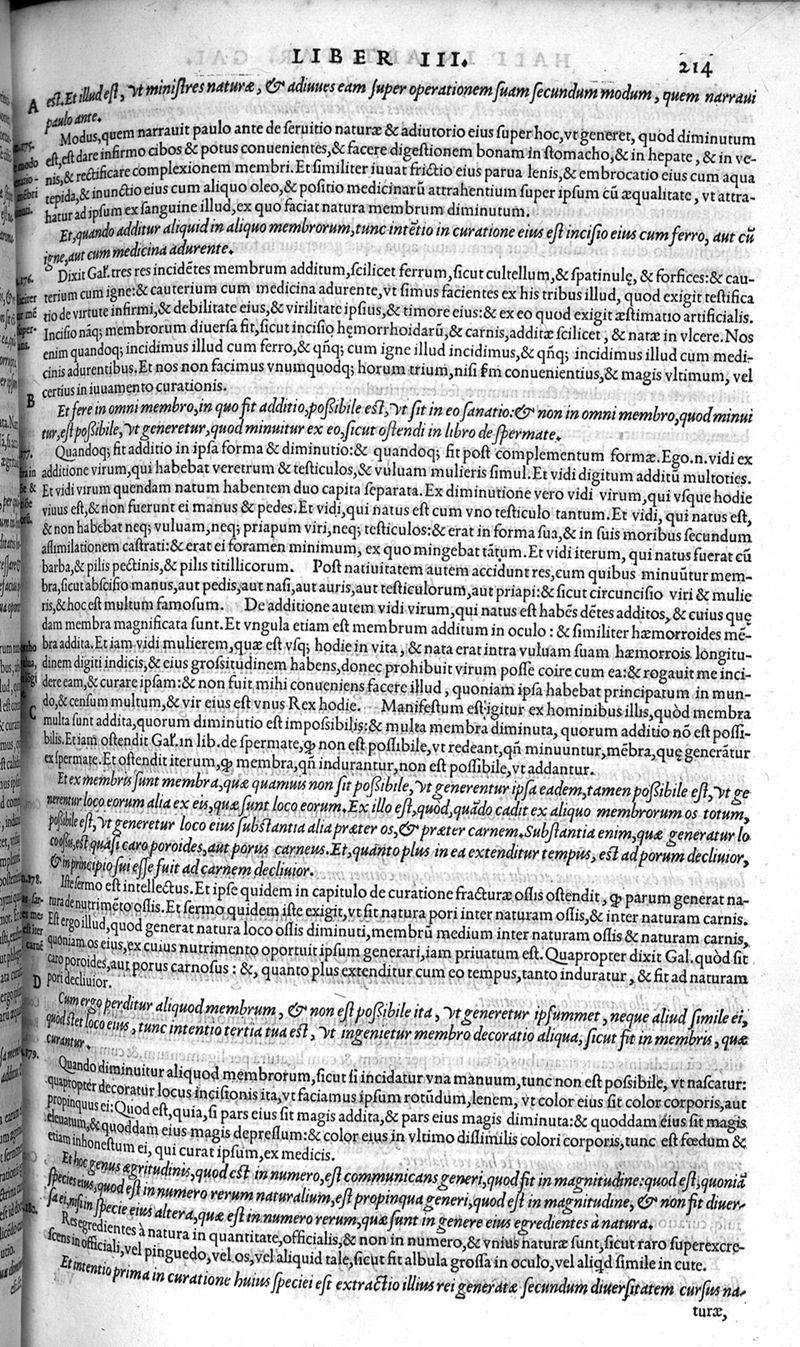 LIBER III.
214
A
est. Et illud est, vt ministres naturæ, & adiuues eam super operationem suam secundum modum, quem narraui
paulo ante.
Modus, quem narrauit paulo ante de seruitio naturæ & adiutorio eius super hoc, vt generet, quod diminutum
est, est dare infirmo cibos & potus conuenientes, & facere digestionem bonam in stomacho, & in hepate, & in ve-
nis, & rectificare complexionem membri. Et similiter iuuat frictio eius parua lenis, & embrocatio eius cum aqua
tepida, & inunctio eius cum aliquo oleo, & positio medicinarũ attrahentium super ipsum cũ æqualitate, vt attra-
hatur ad ipsum ex sanguine illud, ex quo faciat natura membrum diminutum.
Et, quando additur aliquid in aliquo membrorum, tunc intẽtio in curatione eius est incisio eius cum ferro, aut cũ
igne, aut cum medicina adurente.
Dixit Gal. tres res incidẽtes membrum additum, scilicet ferrum, sicut cultellum, & spatinulę, & forfices: & cau-
terium cum igne: & cauterium cum medicina adurente, vt simus facientes ex his tribus illud, quod exigit testifica
tio de virtute infirmi, & debilitate eius, & virilitate ipsius, & timore eius: & ex eo quod exigit æstimatio artificialis.
Incisio nãq; membrorum diuersa fit, sicut incisio hęmorrhoidarũ, & carnis, additæ scilicet, & natæ in vlcere. Nos
enim quandoq; incidimus illud cum ferro, & qñq; cum igne illud incidimus, & qñq; incidimus illud cum medi-
cinis adurentibus. Et nos non facimus vnumquodq; horum trium, nisi fm conuenientius, & magis vltimum, vel
certius in iuuamento curationis.
B
Et fere in omni membro, in quo fit additio, possibile est, vt sit in eo sanatio: & non in omni membro, quod minui
tur, est possibile, vt generetur, quod minuitur ex eo, sicut ostendi in libro de spermate.
Quandoq; fit additio in ipsa forma & diminutio: & quandoq; fit post complementum formæ. Ego.n. vidi ex
additione virum, qui habebat veretrum & testiculos, & vuluam mulieris simul. Et vidi digitum additũ multoties.
Et vidi virum quendam natum habentem duo capita separata. Ex diminutione vero vidi virum, qui vsque hodie
viuus est, & non fuerunt ei manus & pedes. Et vidi, qui natus est cum vno testiculo tantum. Et vidi, qui natus est,
& non habebat neq; vuluam, neq; priapum viri, neq; testiculos: & erat in forma sua, & in suis moribus secundum
assimilationem castrati: & erat ei foramen minimum, ex quo mingebat tãtum. Et vidi iterum, qui natus fuerat cũ
barba, & pilis pectinis, & pilis titillicorum. Post natiuitatem autem accidunt res, cum quibus minuũtur mem-
bra, sicut abscisio manus, aut pedis, aut nasi, aut auris, aut testiculorum, aut priapi: & sicut circuncisio viri & mulie
ris, & hoc est multum famosum. De additione autem vidi virum, qui natus est habẽs dẽtes additos, & cuius que
dam membra magnificata sunt. Et vngula etiam est membrum additum in oculo: & similiter hæmorroides mẽ-
bra addita. Et iam vidi mulierem, quæ est vsq; hodie in vita, & nata erat intra vuluam suam hæmorrois longitu-
dinem digiti indicis, & eius grossitudinem habens, donec prohibuit virum posse coire cum ea: & rogauit me inci-
dere eam, & curare ipsam: & non fuit mihi conueniens facere illud, quoniam ipsa habebat principatum in mun-
do, & censum multum, & vir eius est vnus Rex hodie. Manifestum est igitur ex hominibus illis, quòd membra
C
multa sunt addita, quorum diminutio est impossibilis: & multa membra diminuta, quorum additio nõ est possi-
bilis. Et iam ostendit Gal. in lib. de spermate, ꝙ non est possibile, vt redeant, qñ minuuntur, mẽbra, quę generãtur
ex spermate. Et ostendit iterum, ꝙ membra, qñ indurantur, non est possibile, vt addantur.
Et ex membris sunt membra, quæ quamuis non sit possibile, vt generentur ipsa eadem, tamen possibile est, vt ge
nerentur loco eorum alia ex eis, quæ sunt loco eorum. Ex illo est, quod, quãdo cadit ex aliquo membrorum os totum,
possibile est, vt generetur loco eius substantia alia præter os, & præter carnem. Substantia enim, quæ generatur lo
co ossis, est quasi caro poroides, aut porus carneus. Et, quanto plus in ea extenditur tempus, est ad porum decliuior,
& in principio sui esse fuit ad carnem decliuior.
178.
Iste sermo est intellectus. Et ipse quidem in capitulo de curatione fracturæ ossis ostendit, ꝙ parum generat na-
tura de nutrimẽto ossis. Et sermo quidem iste exigit, vt sit natura pori inter naturam ossis, & inter naturam carnis.
Est ergo illud, quod generat natura loco ossis diminuti, membrũ medium inter naturam ossis & naturam carnis,
quoniam os eius, ex cuius nutrimento oportuit ipsum generari, iam priuatum est. Quapropter dixit Gal. quòd sit
caro poroides, aut porus carnosus: &, quanto plus extenditur cum eo tempus, tanto induratur, & fit ad naturam
pori decliuior.
D
Cum ergo perditur aliquod membrum, & non est possibile ita, vt generetur ipsummet, neque aliud simile ei,
quod stet loco eius, tunc intentio tertia tua est, vt ingenietur membro decoratio aliqua, sicut fit in membris, quæ
curantur.
179.
Quando diminuitur aliquod membrorum, sicut si incidatur vna manuum, tunc non est possibile, vt nascatur:
quapropter decoratur locus incisionis ita, vt faciamus ipsum rotũdum, lenem, vt color eius sit color corporis, aut
propinquus ei: Quod est, quia, si pars eius sit magis addita, & pars eius magis diminuta: & quoddam eius sit magis
eleuatum, & quoddam eius magis depressum: & color eius in vltimo dissimilis colori corporis, tunc est fœdum &
etiam inhonestum ei, qui curat ipsum, ex medicis.
Et hoc genus ægritudinis, quod est in numero, est communicans generi, quod fit in magnitudine: quod est, quoniã
species eius, quod est in numero rerum naturalium, est propinqua generi, quod est in magnitudine, & non fit diuer-
sa ei, nisi in specie eius altera, quæ est in numero rerum, quæ sunt in genere eius egredientes à natura.
Res egredientes à natura in quantitate, officialis, & non in numero, & vnius naturæ sunt, sicut raro superexcre-
scens in officiali, vel pinguedo, vel os, vel aliquid tale, sicut fit albula grossa in oculo, vel aliqd simile in cute.
Et intentio prima in curatione huius speciei est extractio illius rei generatæ secundum diuersitatem cursus na-
turæ,